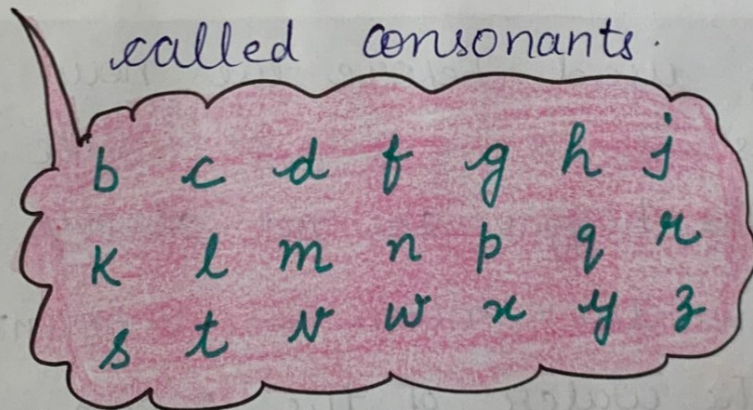 called consonants.
b c d f g h j
k l m n p q r
s t v w x y z